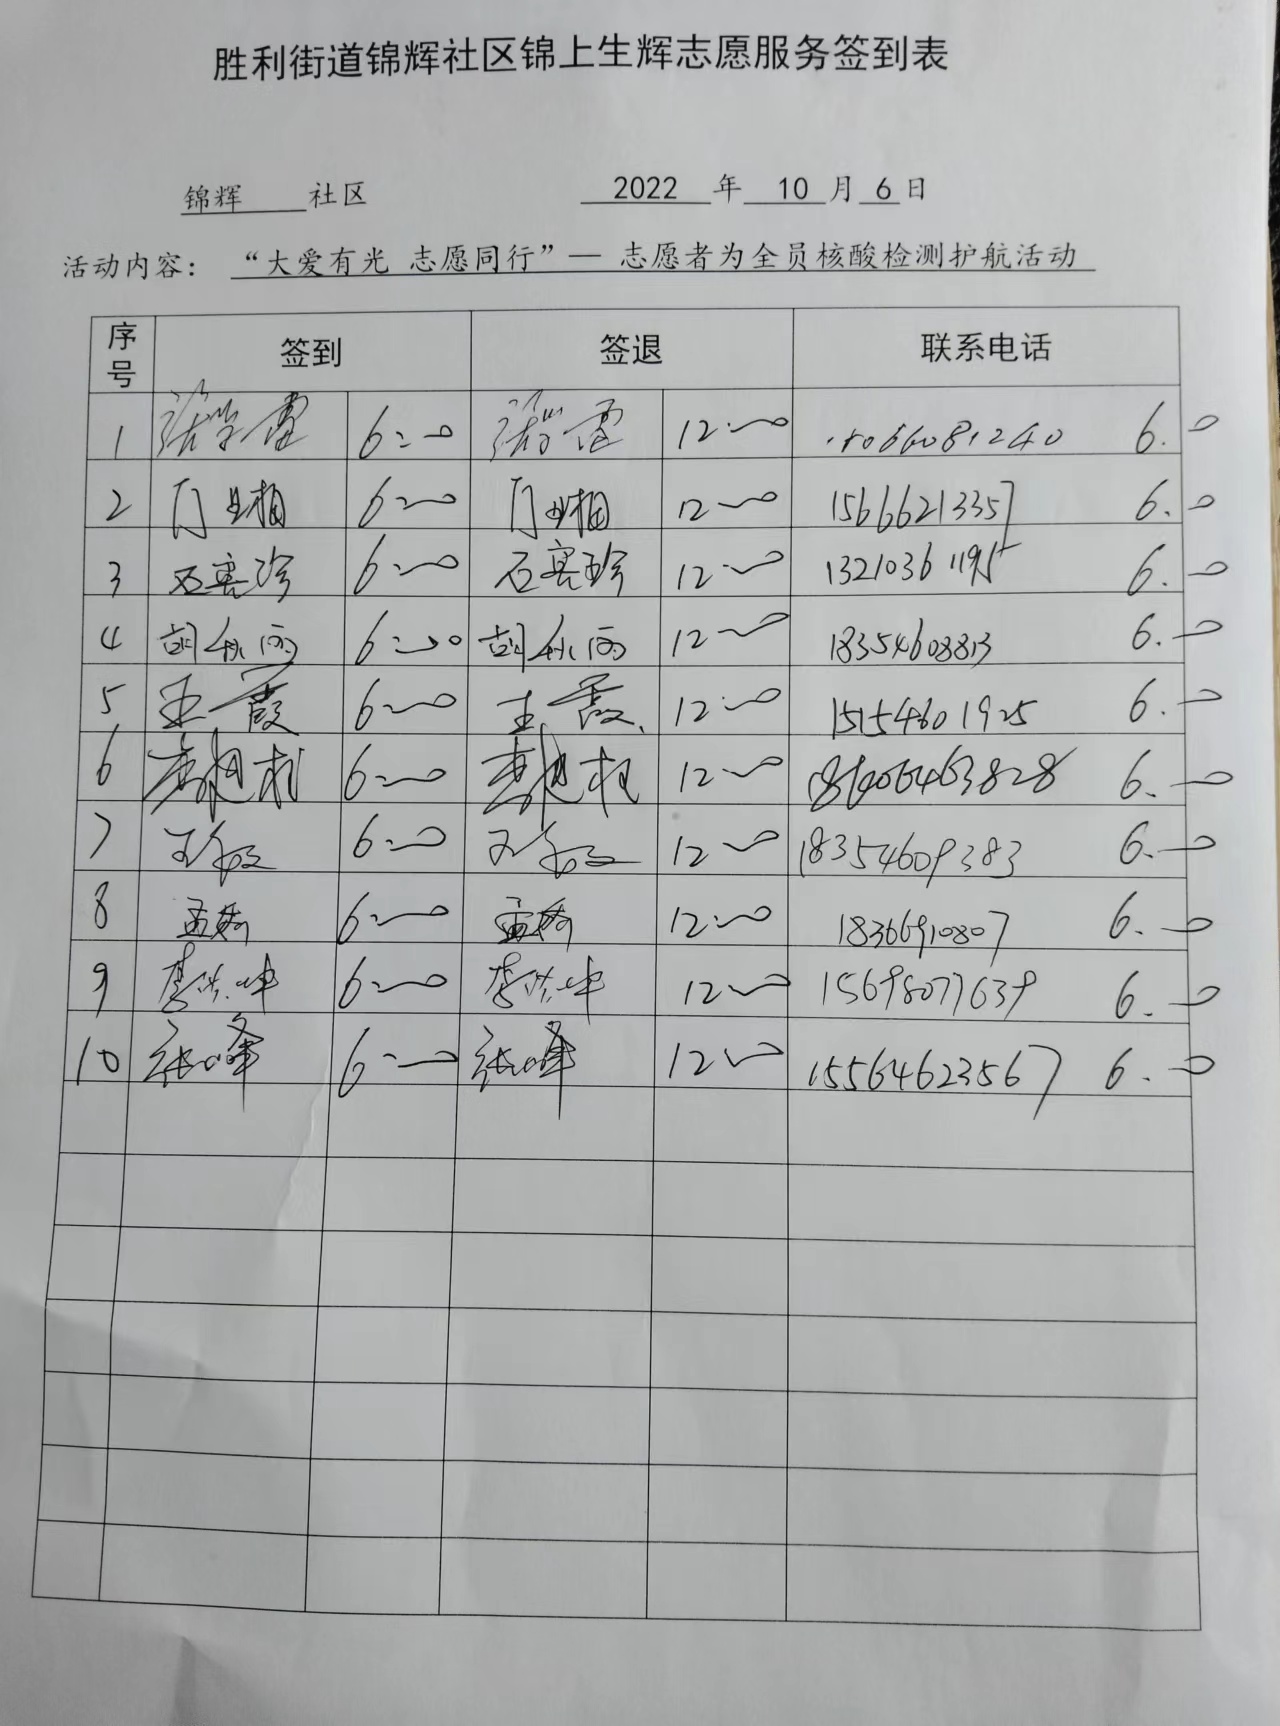 胜利街道锦辉社区锦上生辉志愿服务签到表
锦辉 社区 2022 年 10 月 6 日
活动内容： “大爱有光 志愿同行”— 志愿者为全员核酸检测护航活动
序号 签到 签退 联系电话
1 张学雷 6:00 张学雷 12:00 6.0
2 门 6:00 门 12:00 15666213357 6.0
3 石 珍 6:00 石 珍 12:00 13210361195 6.0
4 胡秋雨 6:00 胡秋雨 12:00 18354608813 6.0
5 王霞 6:00 王霞 12:00 15154601925 6.0
6 6:00 12:00 6.0
7 王 6:00 王 12:00 18354609383 6.0
8 孟 6:00 孟 12:00 18366910807 6.0
9 李洪坤 6:00 李洪坤 12:00 15698077639 6.0
10 张峰 6:00 张峰 12:00 15564623567 6.0